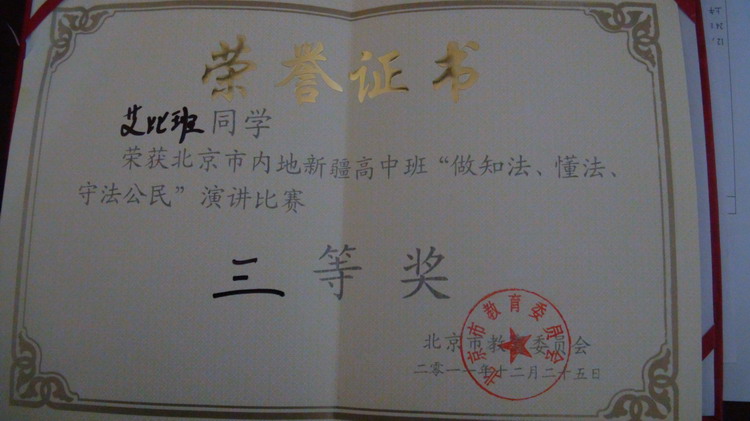 荣誉证书
艾比班同学
荣获北京市内地新疆高中班“做知法、懂法、
守法公民”演讲比赛
三等奖
北京市教育委员会
北京市教育委员会
二零一一年十二月二十五日